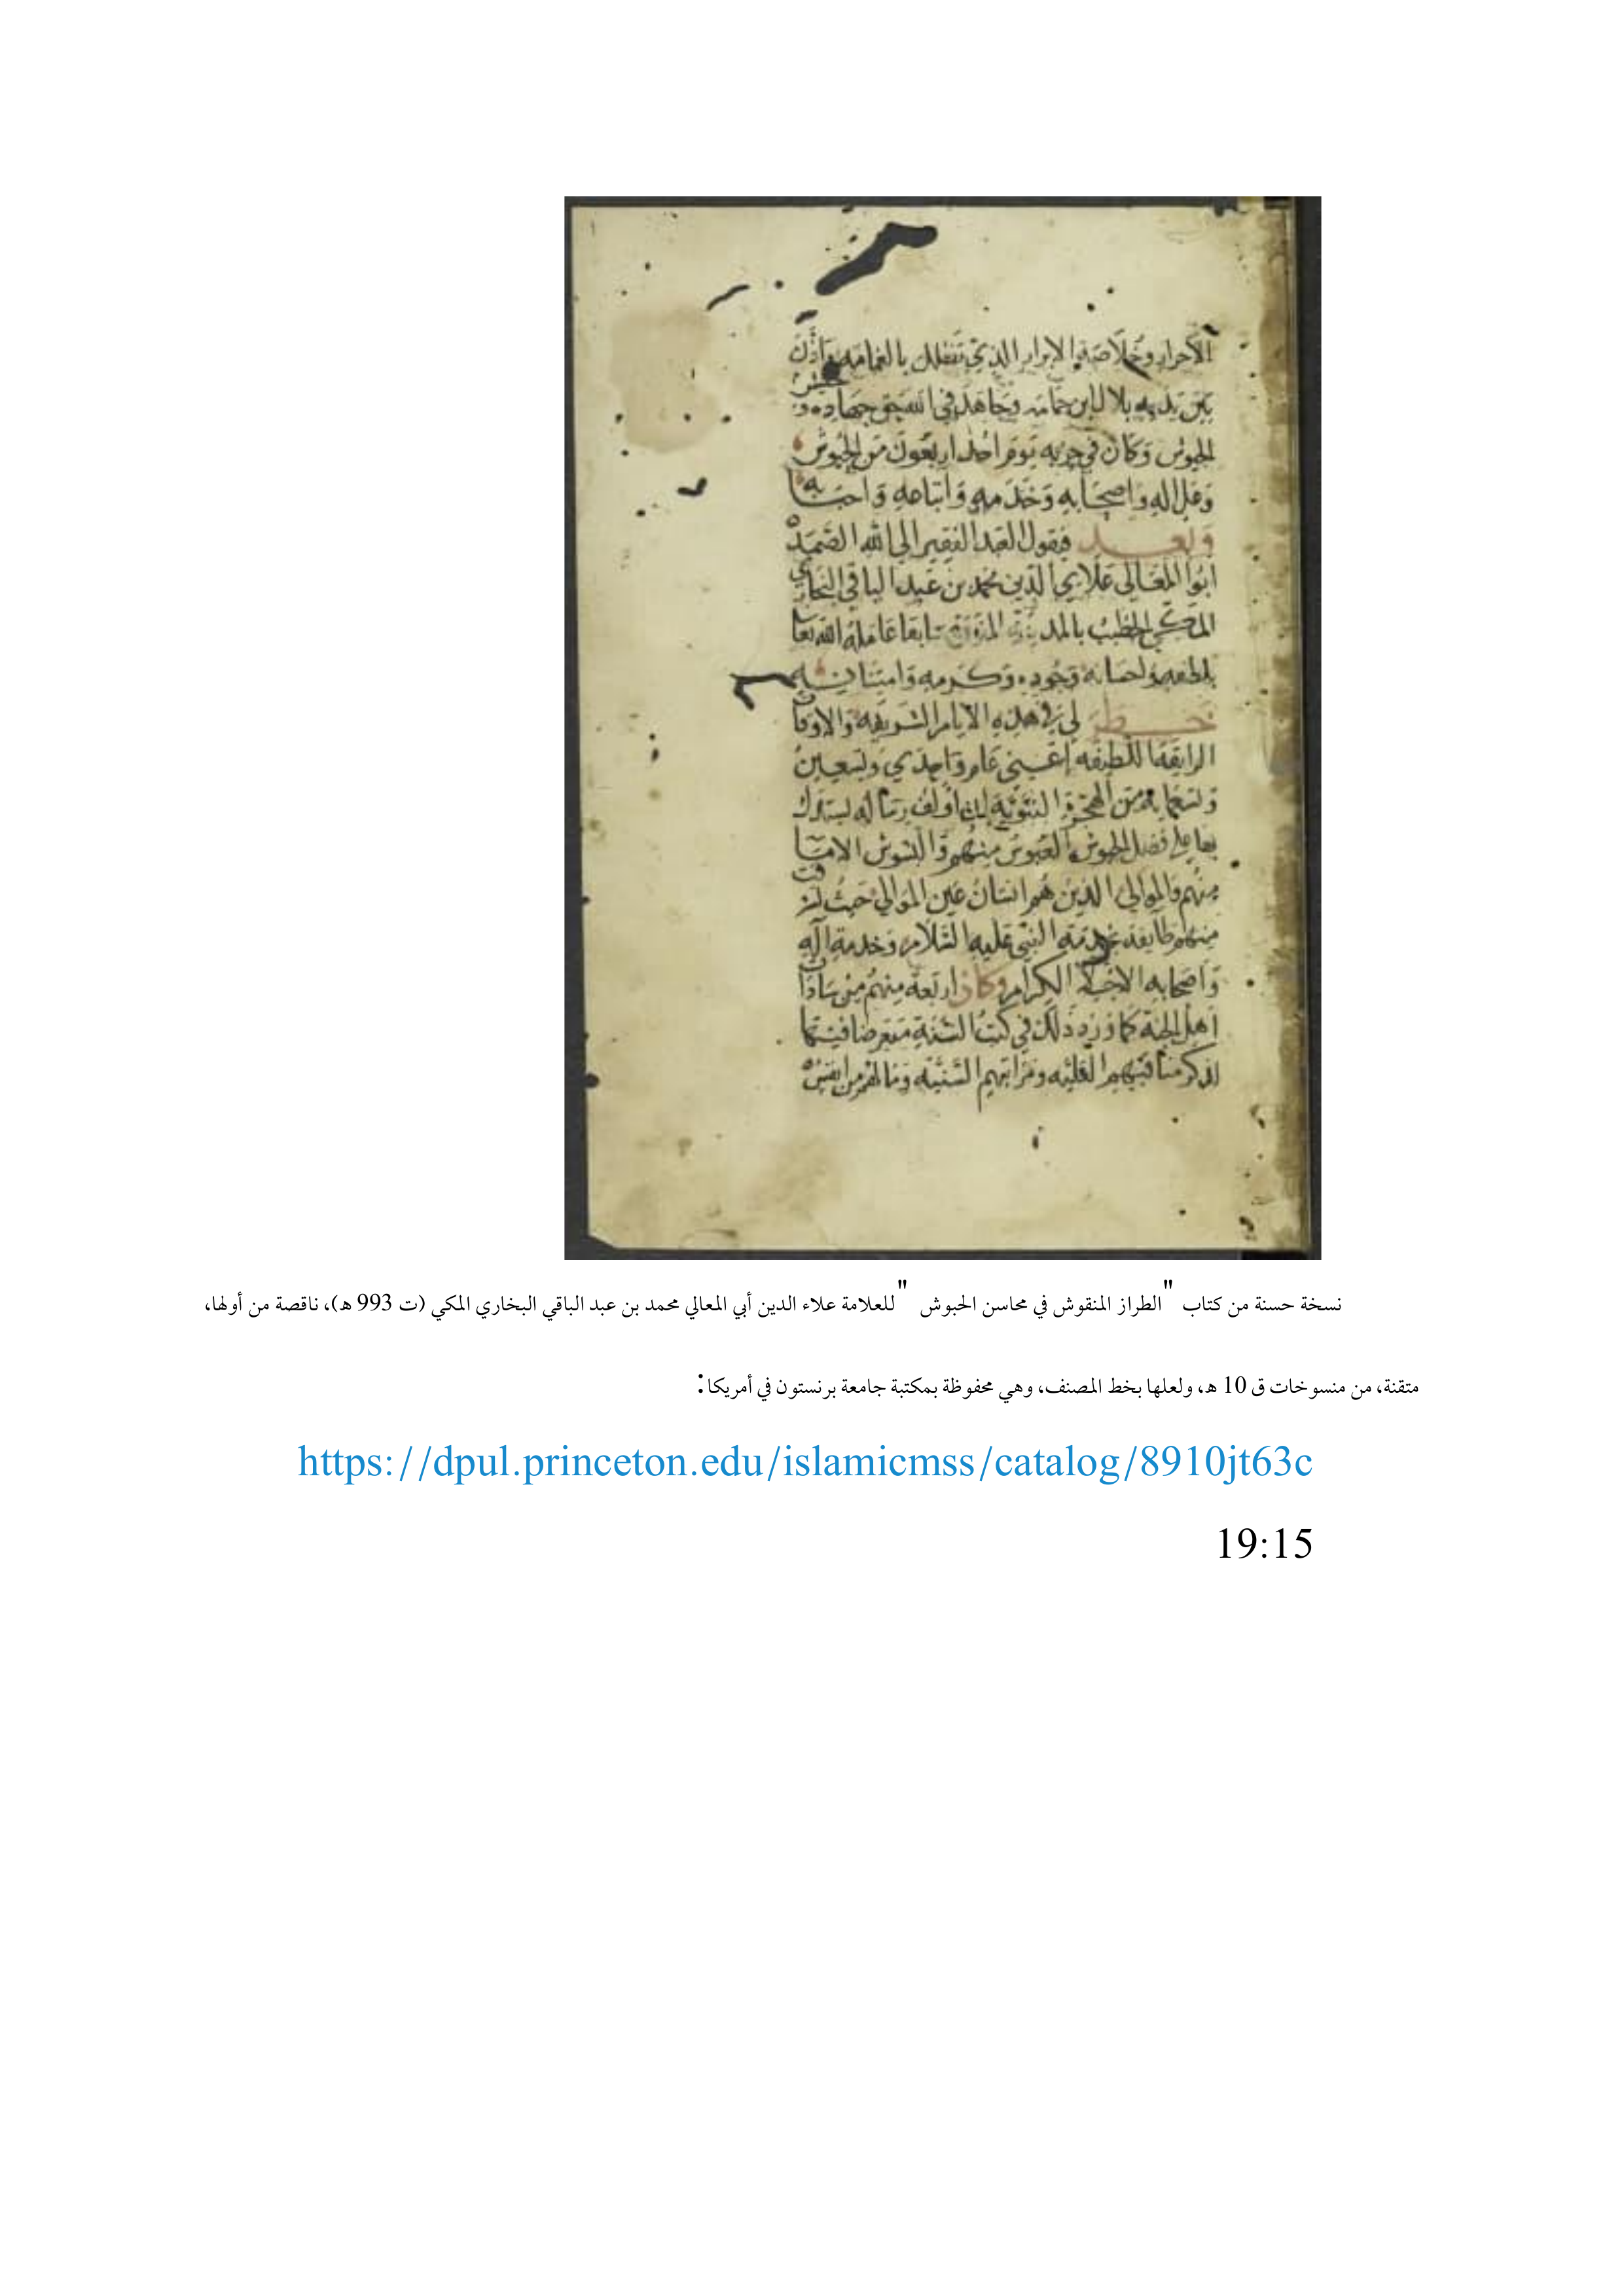 الاحرار وخلاصة الابرار الذي تظلل بالغمامه واذن
بين يديه بلال ابن حمامه وجاهد في الله حق جهاده و
الحبوش وكان في حزبه يوم احد اربعون من الحبوش
وعلى اله واصحابه وخدمه واتباعه واحبابه
وبعد فيقول العبد الفقير الى الله الصمد
ابوا المعالي علاي الدين محمد بن عبد الباقي البخاري
المكي الخطيب بالمدينة المنورة سابقا عامله الله تعا
بلطفه واحسانه وجوده وكرمه وامتنانه
خطر لي في هذه الايام الشريفه والاوقات
الرايقة اللطيفه اعني عام واحدي وتسعين
وتسعمايه من الهجرة النبوية ان اولف رساله ليستدل
بها على فضل الحبوش العبوس منهم والبشوش الاما
منهم والموالي الذين هم انسان عين الموالي حيث
منهم طايفة بخدمة النبي عليه السلام وخدمة آله
واصحابه الاجلة الكرام وكان اربعة منهم من سادات
اهل الجنة كما ورد ذلك في كتب السنة
اذكر مناقبهم العليه ومراتبهم السنيه وما لهم من
نسخة حسنة من كتاب "الطراز المنقوش في محاسن الحبوش" للعلامة علاء الدين أبي المعالي محمد بن عبد الباقي البخاري المكي (ت 993 هـ)، ناقصة من أولها،
متقنة، من منسوخات ق 10 هـ، ولعلها بخط المصنف، وهي محفوظة بمكتبة جامعة برنستون في أمريكا:
https://dpul.princeton.edu/islamicmss/catalog/8910jt63c
19:15